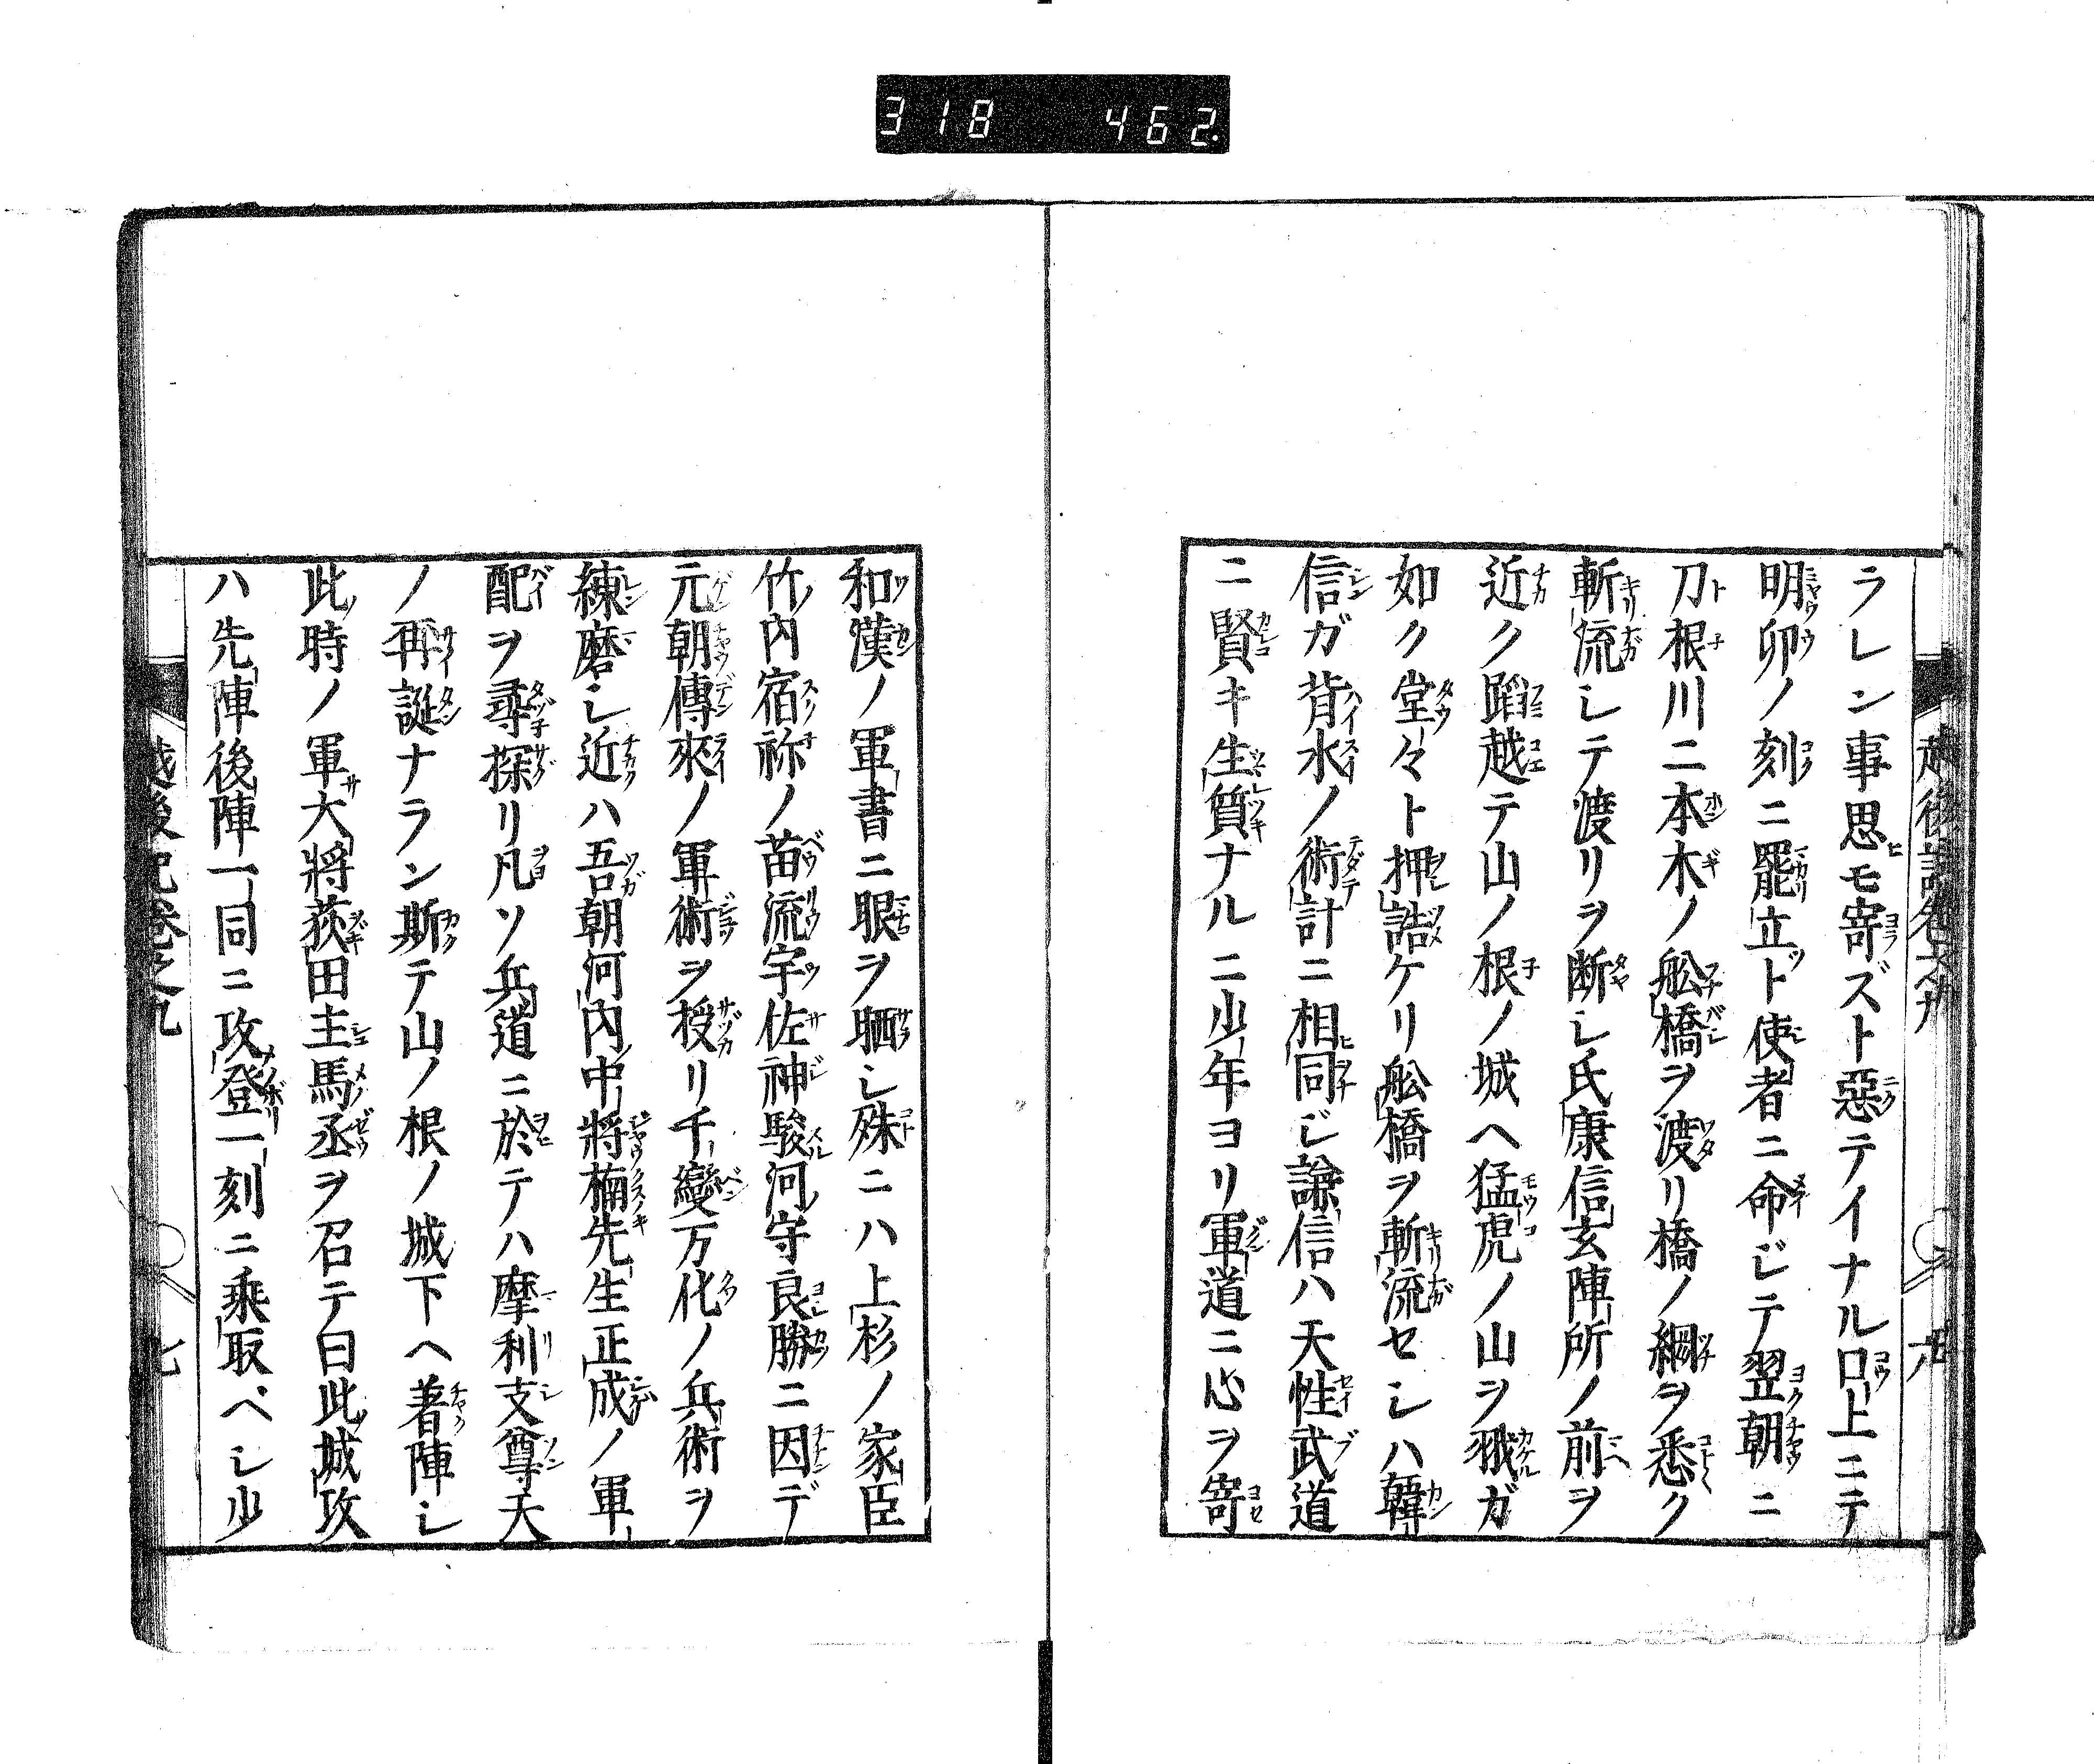 318 462
ラレン事思モ寄ズト惡テイナル口上ニテ
明卯ノ刻ニ罷立ト使者ニ命ジテ翌朝ニ
刀根川ニ本木ノ舩橋ヲ渡リ橋ノ綱ヲ悉ク
斬流シテ渡リヲ断シ氏康信玄陣所ノ前ヲ
近ク蹈越テ山ノ根ノ城ヘ猛虎ノ山ヲ翔ガ
如ク堂々ト押詰ケリ舩橋ヲ斬流セシハ韓
信ガ背水ノ術計ニ相同ジ謙信ハ天性武道
ニ賢キ生質ナルニ少年ヨリ軍道ニ心ヲ寄
和漢ノ軍書ニ眼ヲ晒シ殊ニハ上杉ノ家臣
竹内宿祢ノ苗流宇佐神駿河守良勝ニ因デ
元朝傳來ノ軍術ヲ授リ千變万化ノ兵術ヲ
練磨シ近ハ吾朝河内中將楠先生正成ノ軍
配ヲ尋探リ凡ソ兵道ニ於テハ摩利支尊天
ノ再誕ナラン斯テ山ノ根ノ城下ヘ著陣シ
此時ノ軍大將荻田主馬丞ヲ召テ曰此城攻
ハ先陣後陣一同ニ攻登一刻ニ乗取ベシ少
越後記卷之九
七